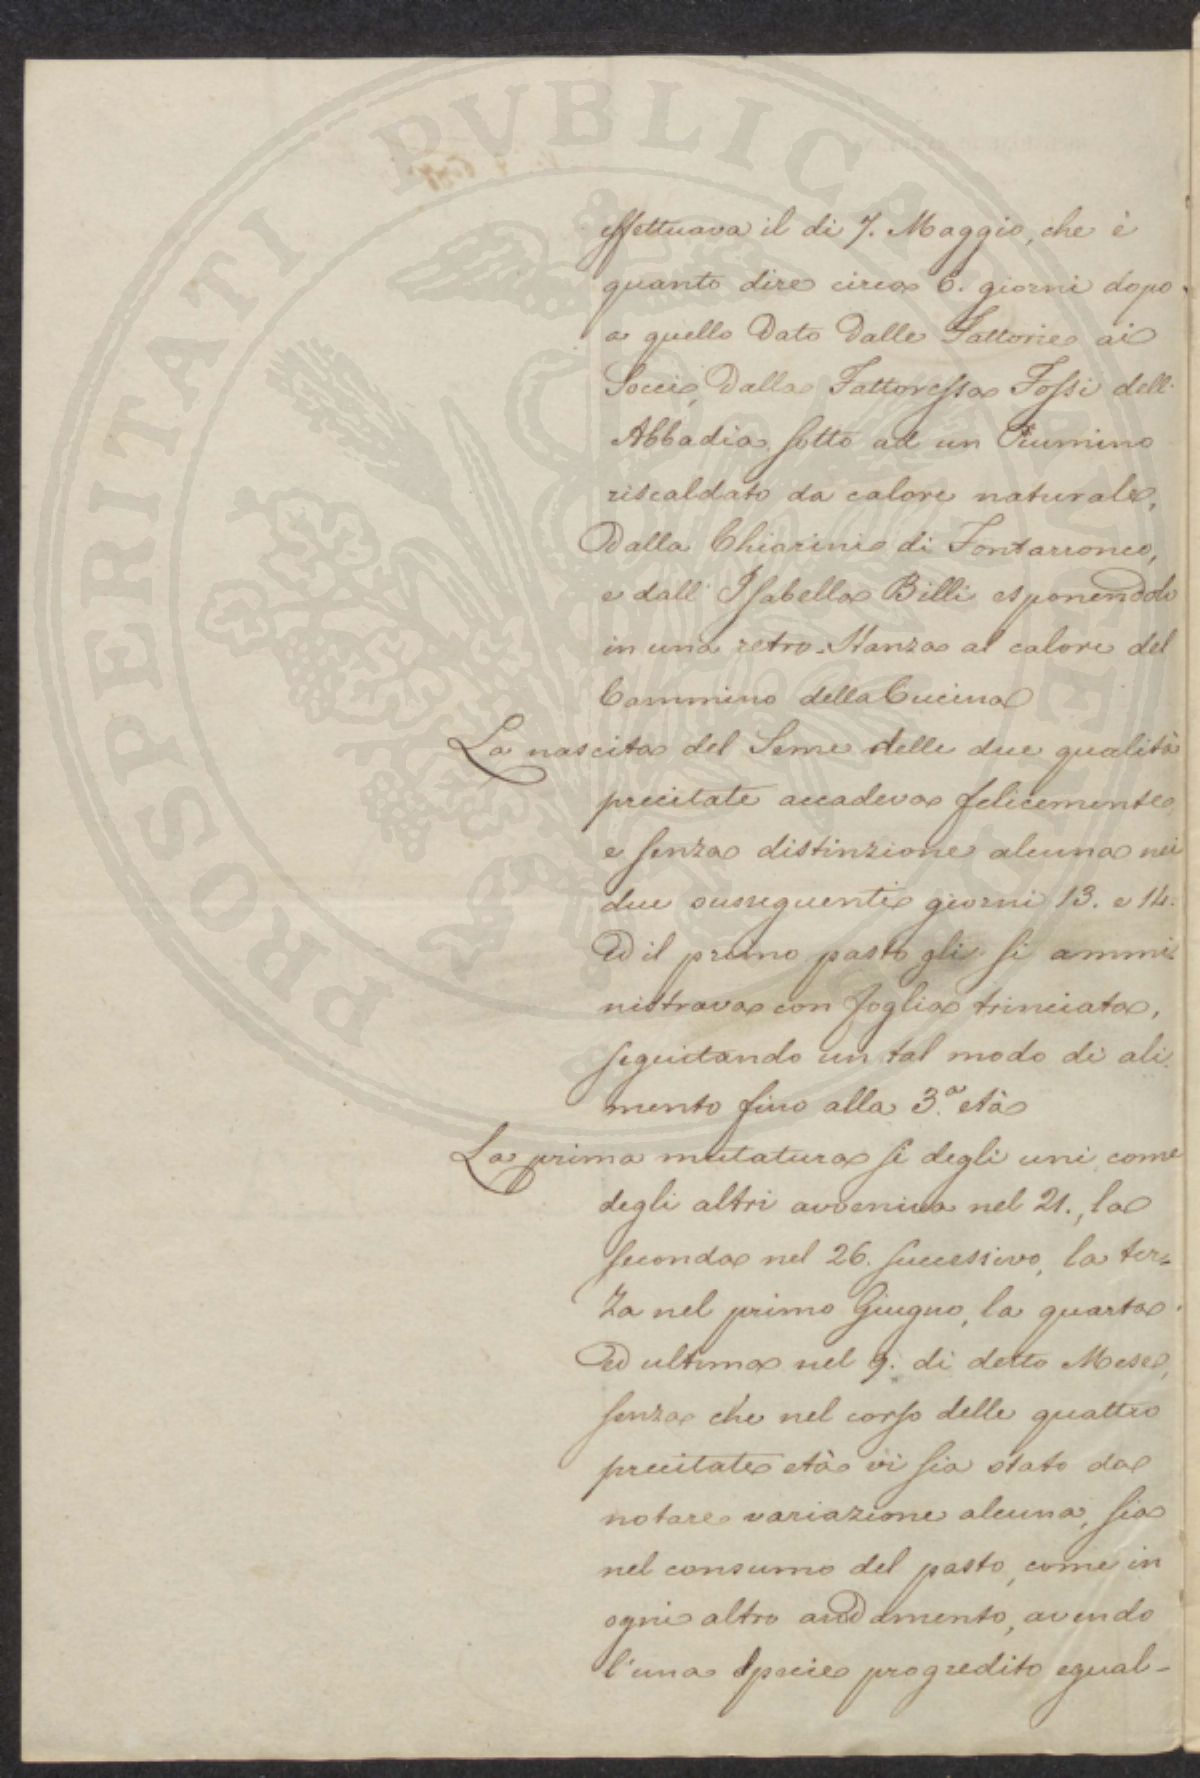 PROSPERITATI PVBLICAE
effettuava il di 7. Maggio, che è
quanto dire circa 6. giorni dopo
a quello Dato Dalle Fattorie ai
Socci, Dalla Fattoressa Fossi dell'
Abbadia sotto ad un Piumino
riscaldato da calore naturale,
Dalla Chiarini di Fontarronco,
e dall' Isabella Billi esponendolo
in una retro-stanza al calore del
Cammino della Cucina
La nascita del Seme delle due qualità
precitate accadeva felicemente
e senza distinzione alcuna nei
due susseguenti giorni 13. e 14.
Ed il primo pasto gli si ammi-
nistrava con foglia trinciata,
seguitando un tal modo di ali
mento fino alla 3.ª età
La prima mutatura sì degli uni come
degli altri avveniva nel 21., la
seconda nel 26. successivo, la ter=
za nel primo Giugno, la quarta
ed ultima nel 9. di detto Mese,
senza che nel corso delle quattro
precitate età vi sia stato da
notare variazione alcuna, sia
nel consumo del pasto, come in
ogni altro andamento, avendo
l'una specie progredito egual-